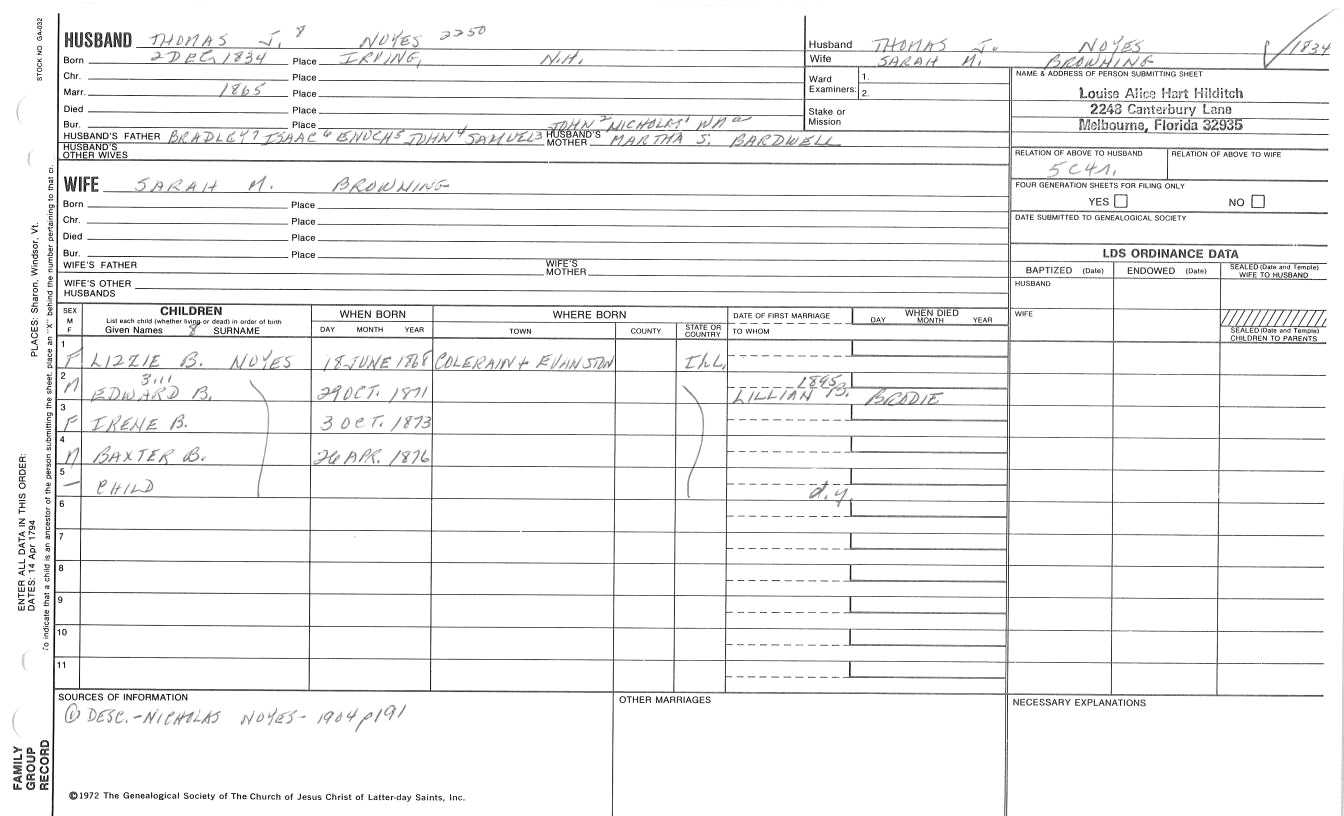 STOCK NO. GA-032
HUSBAND THOMAS J. 8 NOYES 2250
Born 2 DEC 1834 Place IRVING, N.H.
Chr. Place
Marr. 1865 Place
Died Place
Bur. Place JOHN 2 NICHOLAS 1
HUSBAND'S FATHER BRADLEY 7 ISAAC 6 ENOCH 5 JOHN 4 SAMUEL 3 HUSBAND'S MOTHER MARTHA S. BARDWELL
HUSBAND'S OTHER WIVES
WIFE SARAH M. BROWNING
Born Place
Chr. Place
Died Place
Bur. Place
WIFE'S FATHER WIFE'S MOTHER
WIFE'S OTHER HUSBANDS
Husband THOMAS J. NOYES 1834
Wife SARAH M. BROWNING
Ward Examiners: 1. 2.
Stake or Mission
NAME & ADDRESS OF PERSON SUBMITTING SHEET
Louise Alice Hart Hilditch
2248 Canterbury Lane
Melbourne, Florida 32935
RELATION OF ABOVE TO HUSBAND RELATION OF ABOVE TO WIFE
5C4R.
FOUR GENERATION SHEETS FOR FILING ONLY
YES NO
DATE SUBMITTED TO GENEALOGICAL SOCIETY
LDS ORDINANCE DATA
BAPTIZED (Date) ENDOWED (Date) SEALED (Date and Temple) WIFE TO HUSBAND
HUSBAND
WIFE
SEALED (Date and Temple) CHILDREN TO PARENTS
SEX M F
CHILDREN
List each child (whether living or dead) in order of birth
Given Names 8 SURNAME
WHEN BORN
DAY MONTH YEAR
WHERE BORN
TOWN COUNTY STATE OR COUNTRY
DATE OF FIRST MARRIAGE
TO WHOM
WHEN DIED
DAY MONTH YEAR
1 F LIZZIE B. NOYES 18 JUNE 1868 COLERAIN + EVANSTON ILL.
2 M 3111 EDWARD B. 29 OCT. 1871 1895 LILLIAN B. BRODIE
3 F IRENE B. 3 OCT. 1873
4 M BAXTER B. 26 APR. 1876
5 – CHILD d.y.
6
7
8
9
10
11
SOURCES OF INFORMATION
① DESC.-NICHOLAS NOYES-1904 p191
OTHER MARRIAGES
NECESSARY EXPLANATIONS
©1972 The Genealogical Society of The Church of Jesus Christ of Latter-day Saints, Inc.
FAMILY GROUP RECORD
ENTER ALL DATA IN THIS ORDER:
DATES: 14 Apr 1794
PLACES: Sharon, Windsor, Vt.
To indicate that a child is an ancestor of the person submitting the sheet, place an "X" behind the number pertaining to that